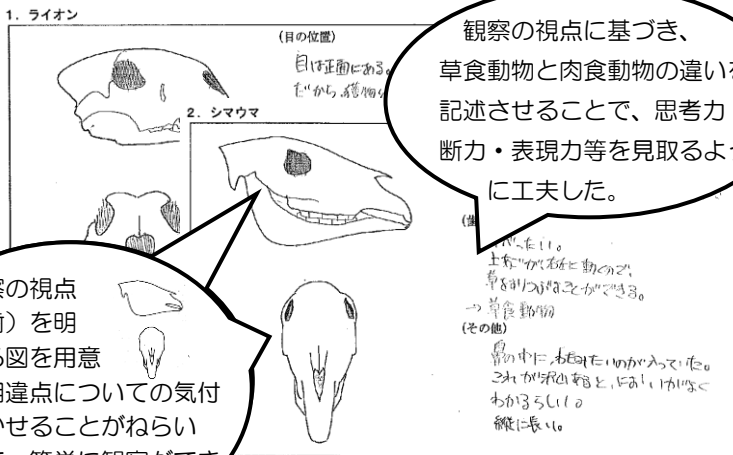 1. ライオン
(目の位置)
目は正面にある。
だから、獲物
2. シマウマ
観察の視点に基づき、
草食動物と肉食動物の違いを
記述させることで、思考力
断力・表現力等を見取るよう
に工夫した。
上あごが、右左と動くので、
草をすりつぶすことができる。
→草食動物
(その他)
鼻の中に、わたみたいのが入っていた。
これが沢山有ると、においがよく
わかるらしい。
縦に長い。
察の視点
を明
る図を用意
相違点についての気付
かせることがねらい
簡単に観察ができ